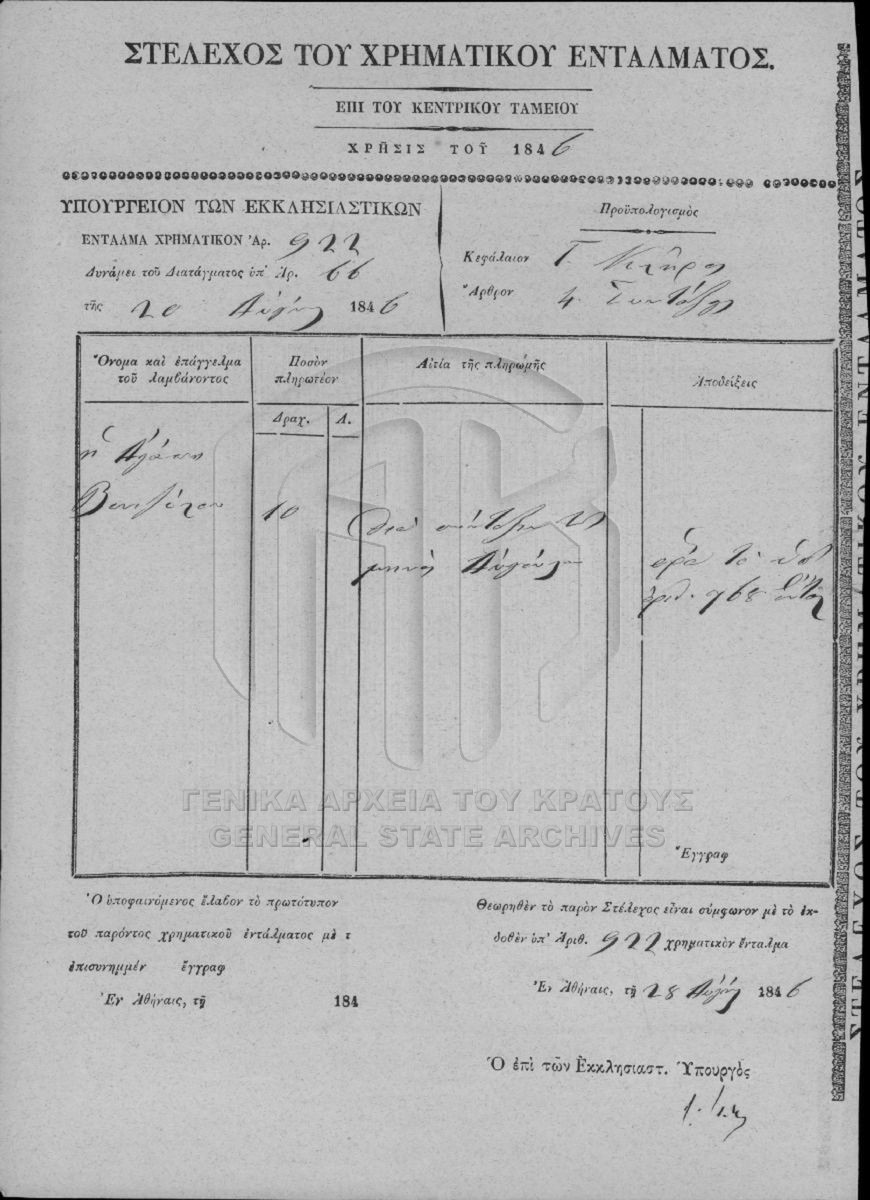 ΣΤΕΛΕΧΟΣ ΤΟΥ ΧΡΗΜΑΤΙΚΟΥ ΕΝΤΑΛΜΑΤΟΣ.
ΕΠΙ ΤΟΥ ΚΕΝΤΡΙΚΟΥ ΤΑΜΕΙΟΥ
ΧΡΗΣΙΣ ΤΟΥ͂ 1846
ΥΠΟΥΡΓΕΙΟΝ ΤΩΝ ΕΚΚΛΗΣΙΑΣΤΙΚΩΝ
ΕΝΤΑΛΜΑ ΧΡΗΜΑΤΙΚΟΝ Ἀρ. 922
Δυνάμει τοῦ Διατάγματος ὑπ' Ἀρ. 66
τῆς 20 Αὐγ 1846
Προϋπολογισμὸς
Κεφάλαιον Γ. Κλῆρος
Ἄρθρον 4. Συντάξεις
Ὄνομα καὶ ἐπάγγελμα
τοῦ λαμβάνοντος
Ποσὸν
πληρωτέον
Δραχ. Λ.
Αἰτία τῆς πληρωμῆς
Ἀποδείξεις
ἡ
10
διὰ σύνταξιν τοῦ
μηνὸς Αὐγούστου
ὅρα τὸ ὑπ'
ἀριθ. 768
Ἔγγραφ
Ὁ ὑποφαινόμενος ἔλαβον τὸ πρωτότυπον
τοῦ παρόντος χρηματικοῦ ἐντάλματος μὲ τ
ἐπισυνημμέν ἔγγραφ
Ἐν Ἀθήναις, τῇ 184
Θεωρηθὲν τὸ παρὸν Στέλεχος εἶναι σύμφωνον μὲ τὸ ἐκ-
δοθὲν ὑπ' Ἀριθ. 922 χρηματικὸν ἔνταλμα
Ἐν Ἀθήναις, τῇ 28 Αὐγ 1846
Ὁ ἐπὶ τῶν Ἐκκλησιαστ. Ὑπουργὸς
ΓΕΝΙΚΑ ΑΡΧΕΙΑ ΤΟΥ ΚΡΑΤΟΥΣ
GENERAL STATE ARCHIVES
ΣΤΕΛΕΧΟΣ ΤΟΥ ΧΡΗΜΑΤΙΚΟΥ ΕΝΤΑΛΜΑΤΟΣ